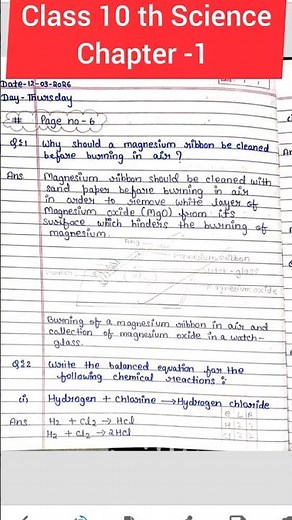 Class 10 th Science
Chapter -1
Date-12-03-2026
Day - Thursday
# Page no-6
Q≥1 Why should a magnesium ribbon be cleaned
before burning in air?
Ans Magnesium ribbon should be cleaned with
sand paper before burning in air
in order to remove white layer of
Magnesium oxide (MgO) from its
surface which hinders the burning of
magnesium.
Magnesium ribbon
Burner
watch-glass
Magnesium oxide
Burning of a magnesium ribbon in air and
collection of magnesium oxide in a watch-
glass.
Q≥2 Write the balanced equation for the
following chemical reactions :
i) Hydrogen + chlorine → Hydrogen chloride
Ans H₂ + Cl₂ → HCl
H₂ + Cl₂ → 2HCl